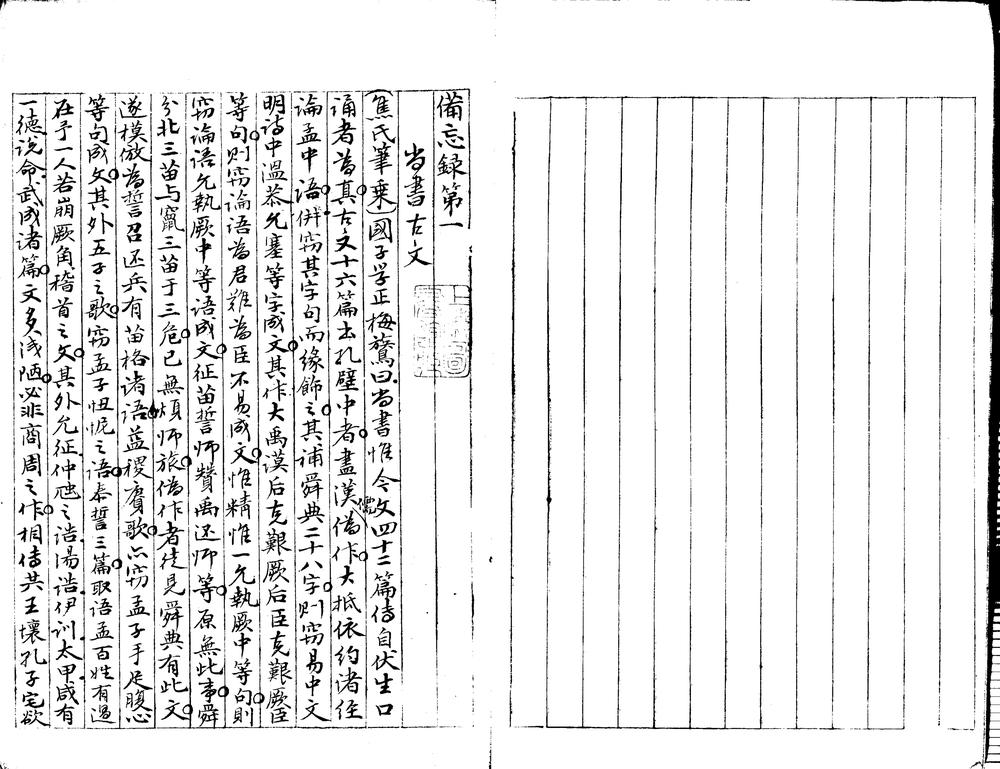 備忘録第一
尚書古文
(焦氏筆乗)國子学正梅鷟曰尚書惟今文四十二篇傳自伏生口
誦者為真古文十六篇出孔壁中者盡漢儒偽作大抵依約諸経
論孟中語併竊其字句而緣飾之其補舜典二十八字則竊易中文
明詩中温恭允塞等字成文其作大禹謨后克艱厥后臣克艱厥臣
等句則竊論語為君難為臣不易成文惟精惟一允執厥中等句則
竊論語允執厥中等語成文征苗誓師賛禹还师等原無此事舜
分北三苗与竄三苗于三危已無煩师旅偽作者徒見舜典有此文
遂模倣為誓召还兵有苗格诸语益稷賡歌亦竊孟子手足腹心
等句成文其外五子之歌竊孟子忸怩之语泰誓三篇取语孟百姓有過
在予一人若崩厥角稽首之文其外允征仲虺之誥湯誥伊训太甲咸有
一德说命武成诸篇文多浅陋必非商周之作相傳共王壞孔子宅欲